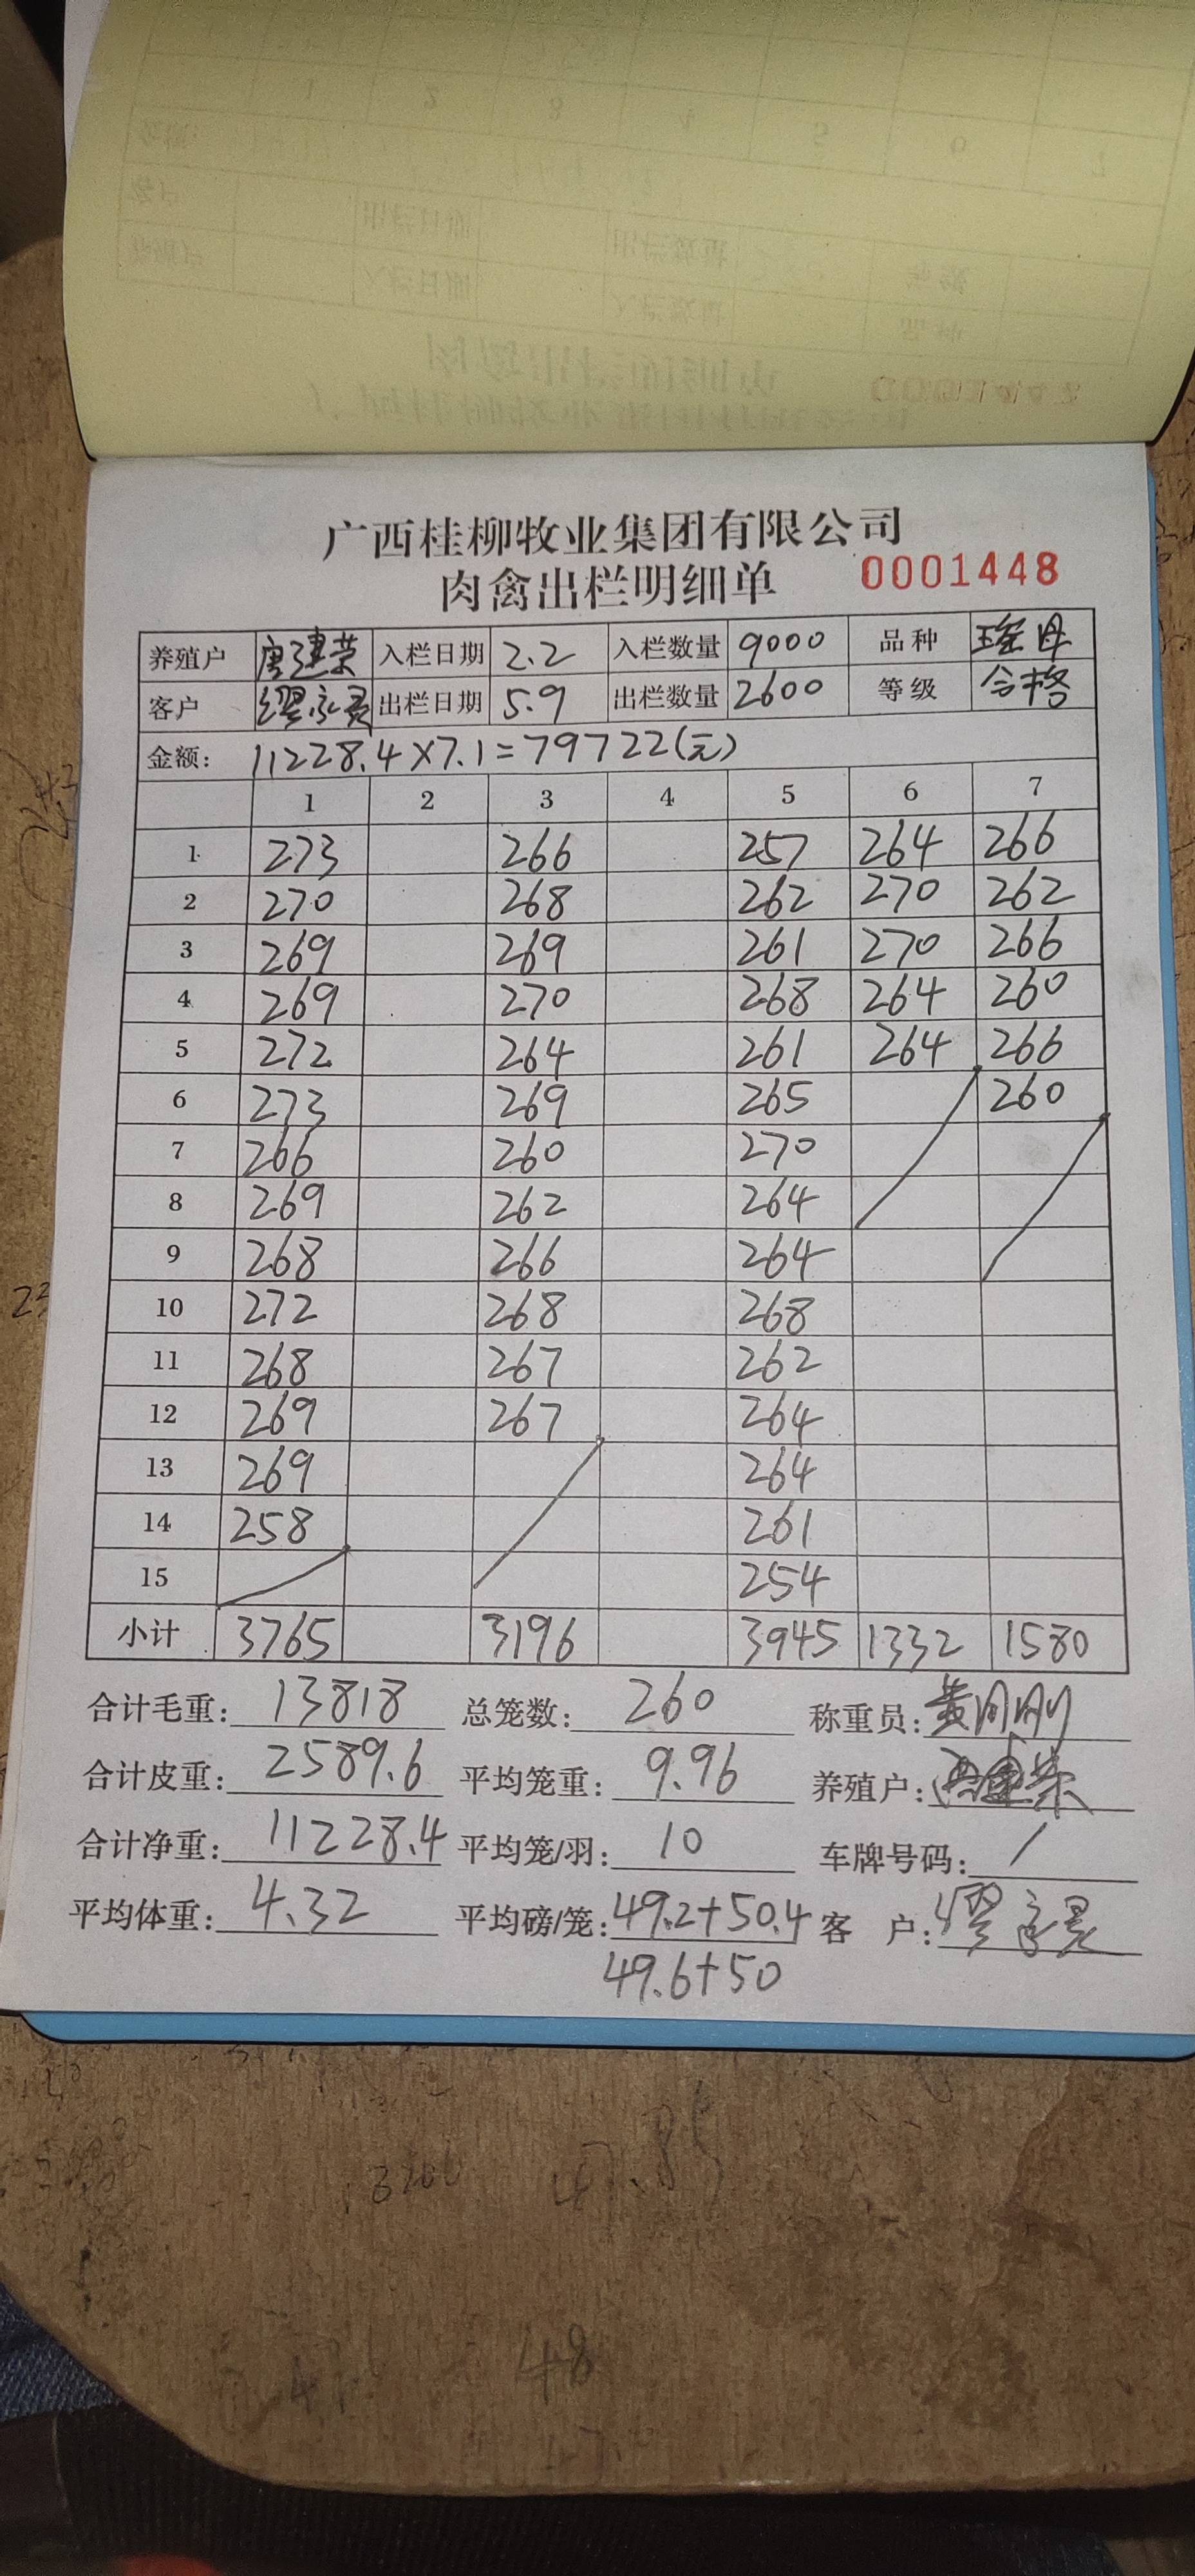 广西桂柳牧业集团有限公司
肉禽出栏明细单 0001448
养殖户 唐建荣 入栏日期 2.2 入栏数量 9000 品种 瑶母
客户 缪永灵 出栏日期 5.9 出栏数量 2600 等级 合格
金额: 11228.4×7.1=79722(元)
1 2 3 4 5 6 7
1 273 266 257 264 266
2 270 268 262 270 262
3 269 269 261 270 266
4 269 270 268 264 260
5 272 264 261 264 266
6 273 269 265 260
7 266 260 270
8 269 262 264
9 268 266 264
10 272 268 268
11 268 267 262
12 269 267 264
13 269 264
14 258 261
15 254
小计 3765 3196 3945 1332 1580
合计毛重: 13818 总笼数: 260 称重员: 黄刚刚
合计皮重: 2589.6 平均笼重: 9.96 养殖户:
合计净重: 11228.4 平均笼/羽: 10 车牌号码: /
平均体重: 4.32 平均磅/笼: 49.2+50.4 客 户:
49.6+50
48